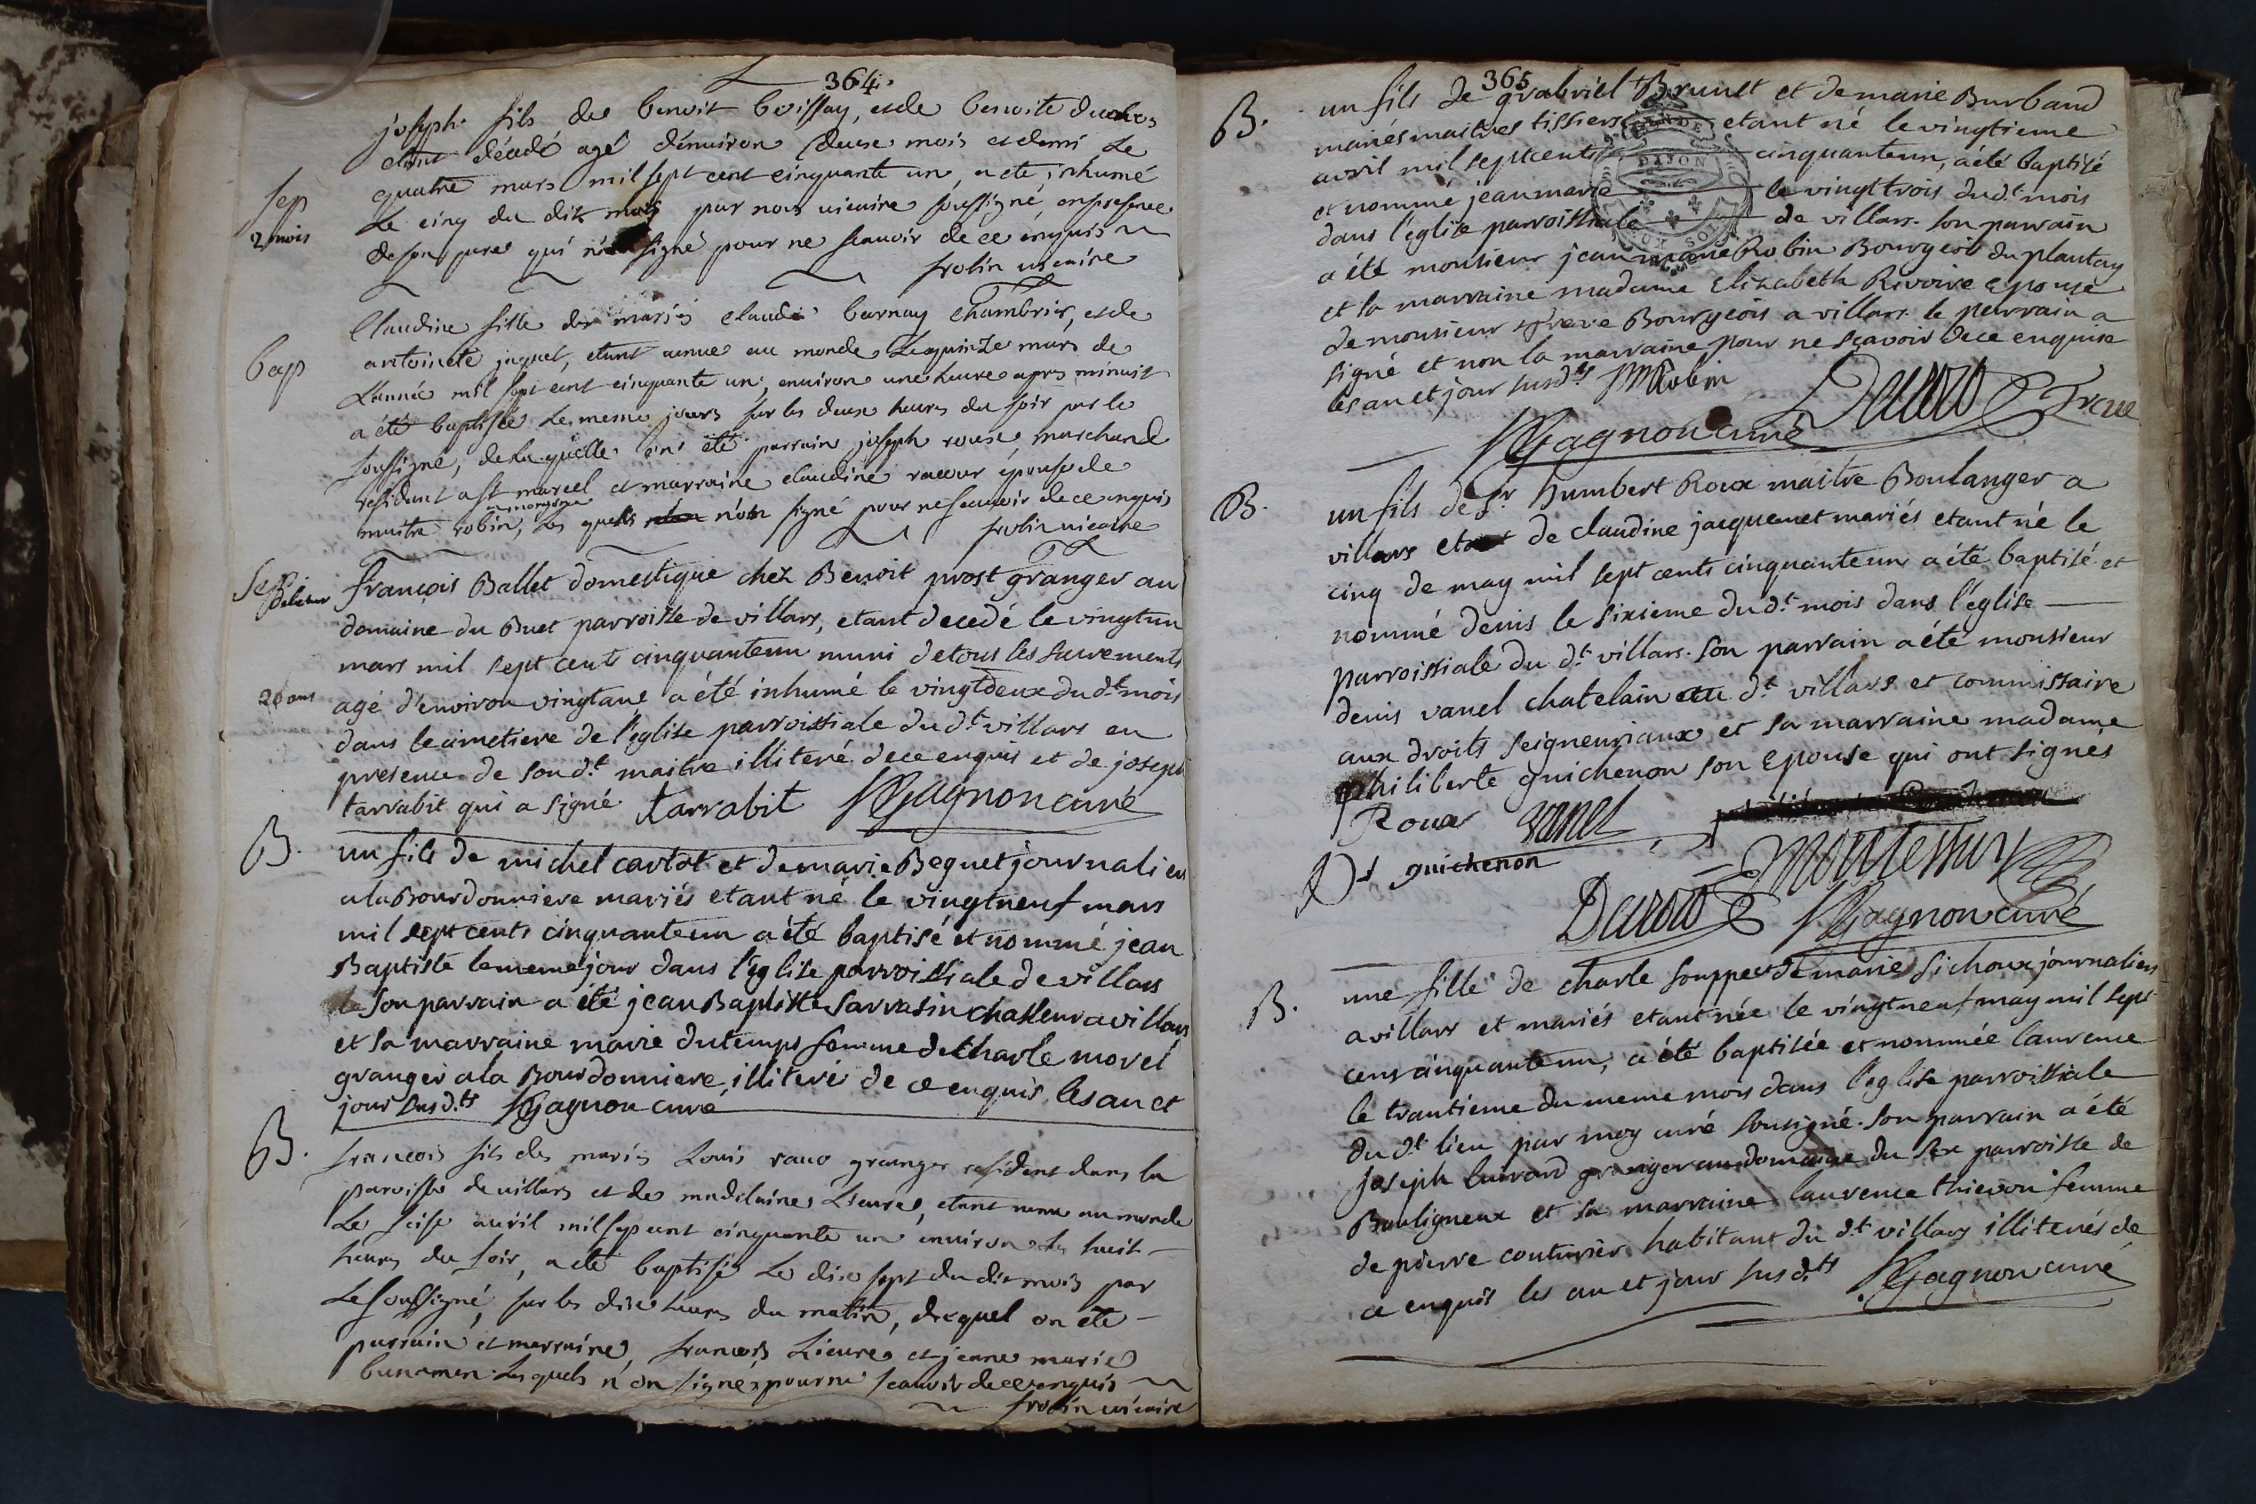 364.
joseph fils de benoit boissay, et de benoite
etant décedé agé d'environ deuse mois et demi Le
Sep
quatre mars mil sept cent cinquante un, a eté inhumé
2 mois
Le cinq du dit mois par nous vicaire soussigné, en presence
de son pere qui n'a signé pour ne scauoir de ce enquis
frolin vicaire
Claudine fille des mariés claude barnay chambrier, et de
Bap
antoinete jaquet, etant venue au monde Le quinze mars de
L'année mil sept cent cinquante un, environ une heure apres minuit
a été baptisée Le meme jours sur les deux heures du soir par le
soussigné, de la quelle on été parrain joseph roux marchand
residant a st marcel et marraine claudine racour épouse de
maitre robin, les quels n'on signé pour ne scauoir de ce enquis
frolin vicaire
Sep
françois Ballet domestique chez Benoit prost granger au
domaine du Buet parroisse de villars, etant decedé le vingtun
mars mil sept cents cinquanteun muni de tous les sacrements
20 ans
agé d'environ vingt ans a été inhumé le vingtdeux du dt mois
dans le cimetiere de l'eglise parroissiale du dt villars en
presence de son dt maitre illiteré de ce enquis et de joseph
tarrabit qui a signé tarrabit Gagnon curé
B.
un fils de michel carlot et de marie Bequet journaliers
a la Bourdonniere mariés etant né le vingtneuf mars
mil sept cents cinquanteun a été baptisé et nommé jean
Baptiste le meme jour dans l'eglise parroissiale de villars
son parrain a été jean Baptiste Sarrasin chasseur a villars
et sa marraine marie dutemps femme de Charle morel
granger a la Bourdonniere illiteré de ce enquis les an et
jour susdts Gagnon curé
B.
francois fils des mariés Louis raux granger residant dans la
paroisse de villars et de madelaine Lieure, etant venu au monde
Le seise auril mil sept cent cinquante un environ les huit
heures du soir, a eté baptisé Le dix sept du dit mois par
Le soussigné, sur les dix heures du matin, du quel on été
parrain et marraine francois Lieure et jeanne marie
bunamen Les quels n'on signé pour ne scauoir de ce enquis
frolin vicaire
365
B.
un fils de grabriel Brunet et de marie Burband
mariés maitres tissiers etant né le vingtieme
avril mil septcents cinquanteun, a été baptisé
et nommé jean marie le vingt trois du dt mois
dans l'eglise parroissiale de villars. son parrain
a été monsieur jean marie Robin Bourgeois du plantay
et la marraine madame Elizabeth Rivoire epouse
de monsieur greve Bourgeois a villars le parrain a
signé et non la marraine pour ne sçavoir de ce enquise
les an et jour susdts JM Robin
Gagnon curé
B.
un fils de Sr humbert Roux maitre Boulanger a
villars et de claudine jacquemet mariés etant né le
cinq de may mil sept cents cinquanteun a été baptisé et
nommé denis le sixieme du dt mois dans l'eglise
parroissiale du dt villars. son parrain a été monsieur
denis vanel chatelain au dt villars et commissaire
aux droits seigneuriaux et sa marraine madame
philiberte guichenon son epouse qui ont signés
Roux vanel
guichenon
Montessuy
Gagnon curé
B.
une fille de charle souppe et de marie Sichoux journaliers
a villars et mariés etant née le vingtneuf may mil sept
cens cinquanteun, a été baptisée et nommée laurence
le trantieme du meme mois dans l'eglise parroissiale
du dt lieu par moy curé sousigné. son parrain a été
joseph laurard granger au domaine du parroisse de
Bouligneux et sa marraine laurence thievon femme
de pierre couturier habitant du dt villars illiterés de
ce enquis les an et jour susdts Gagnon curé